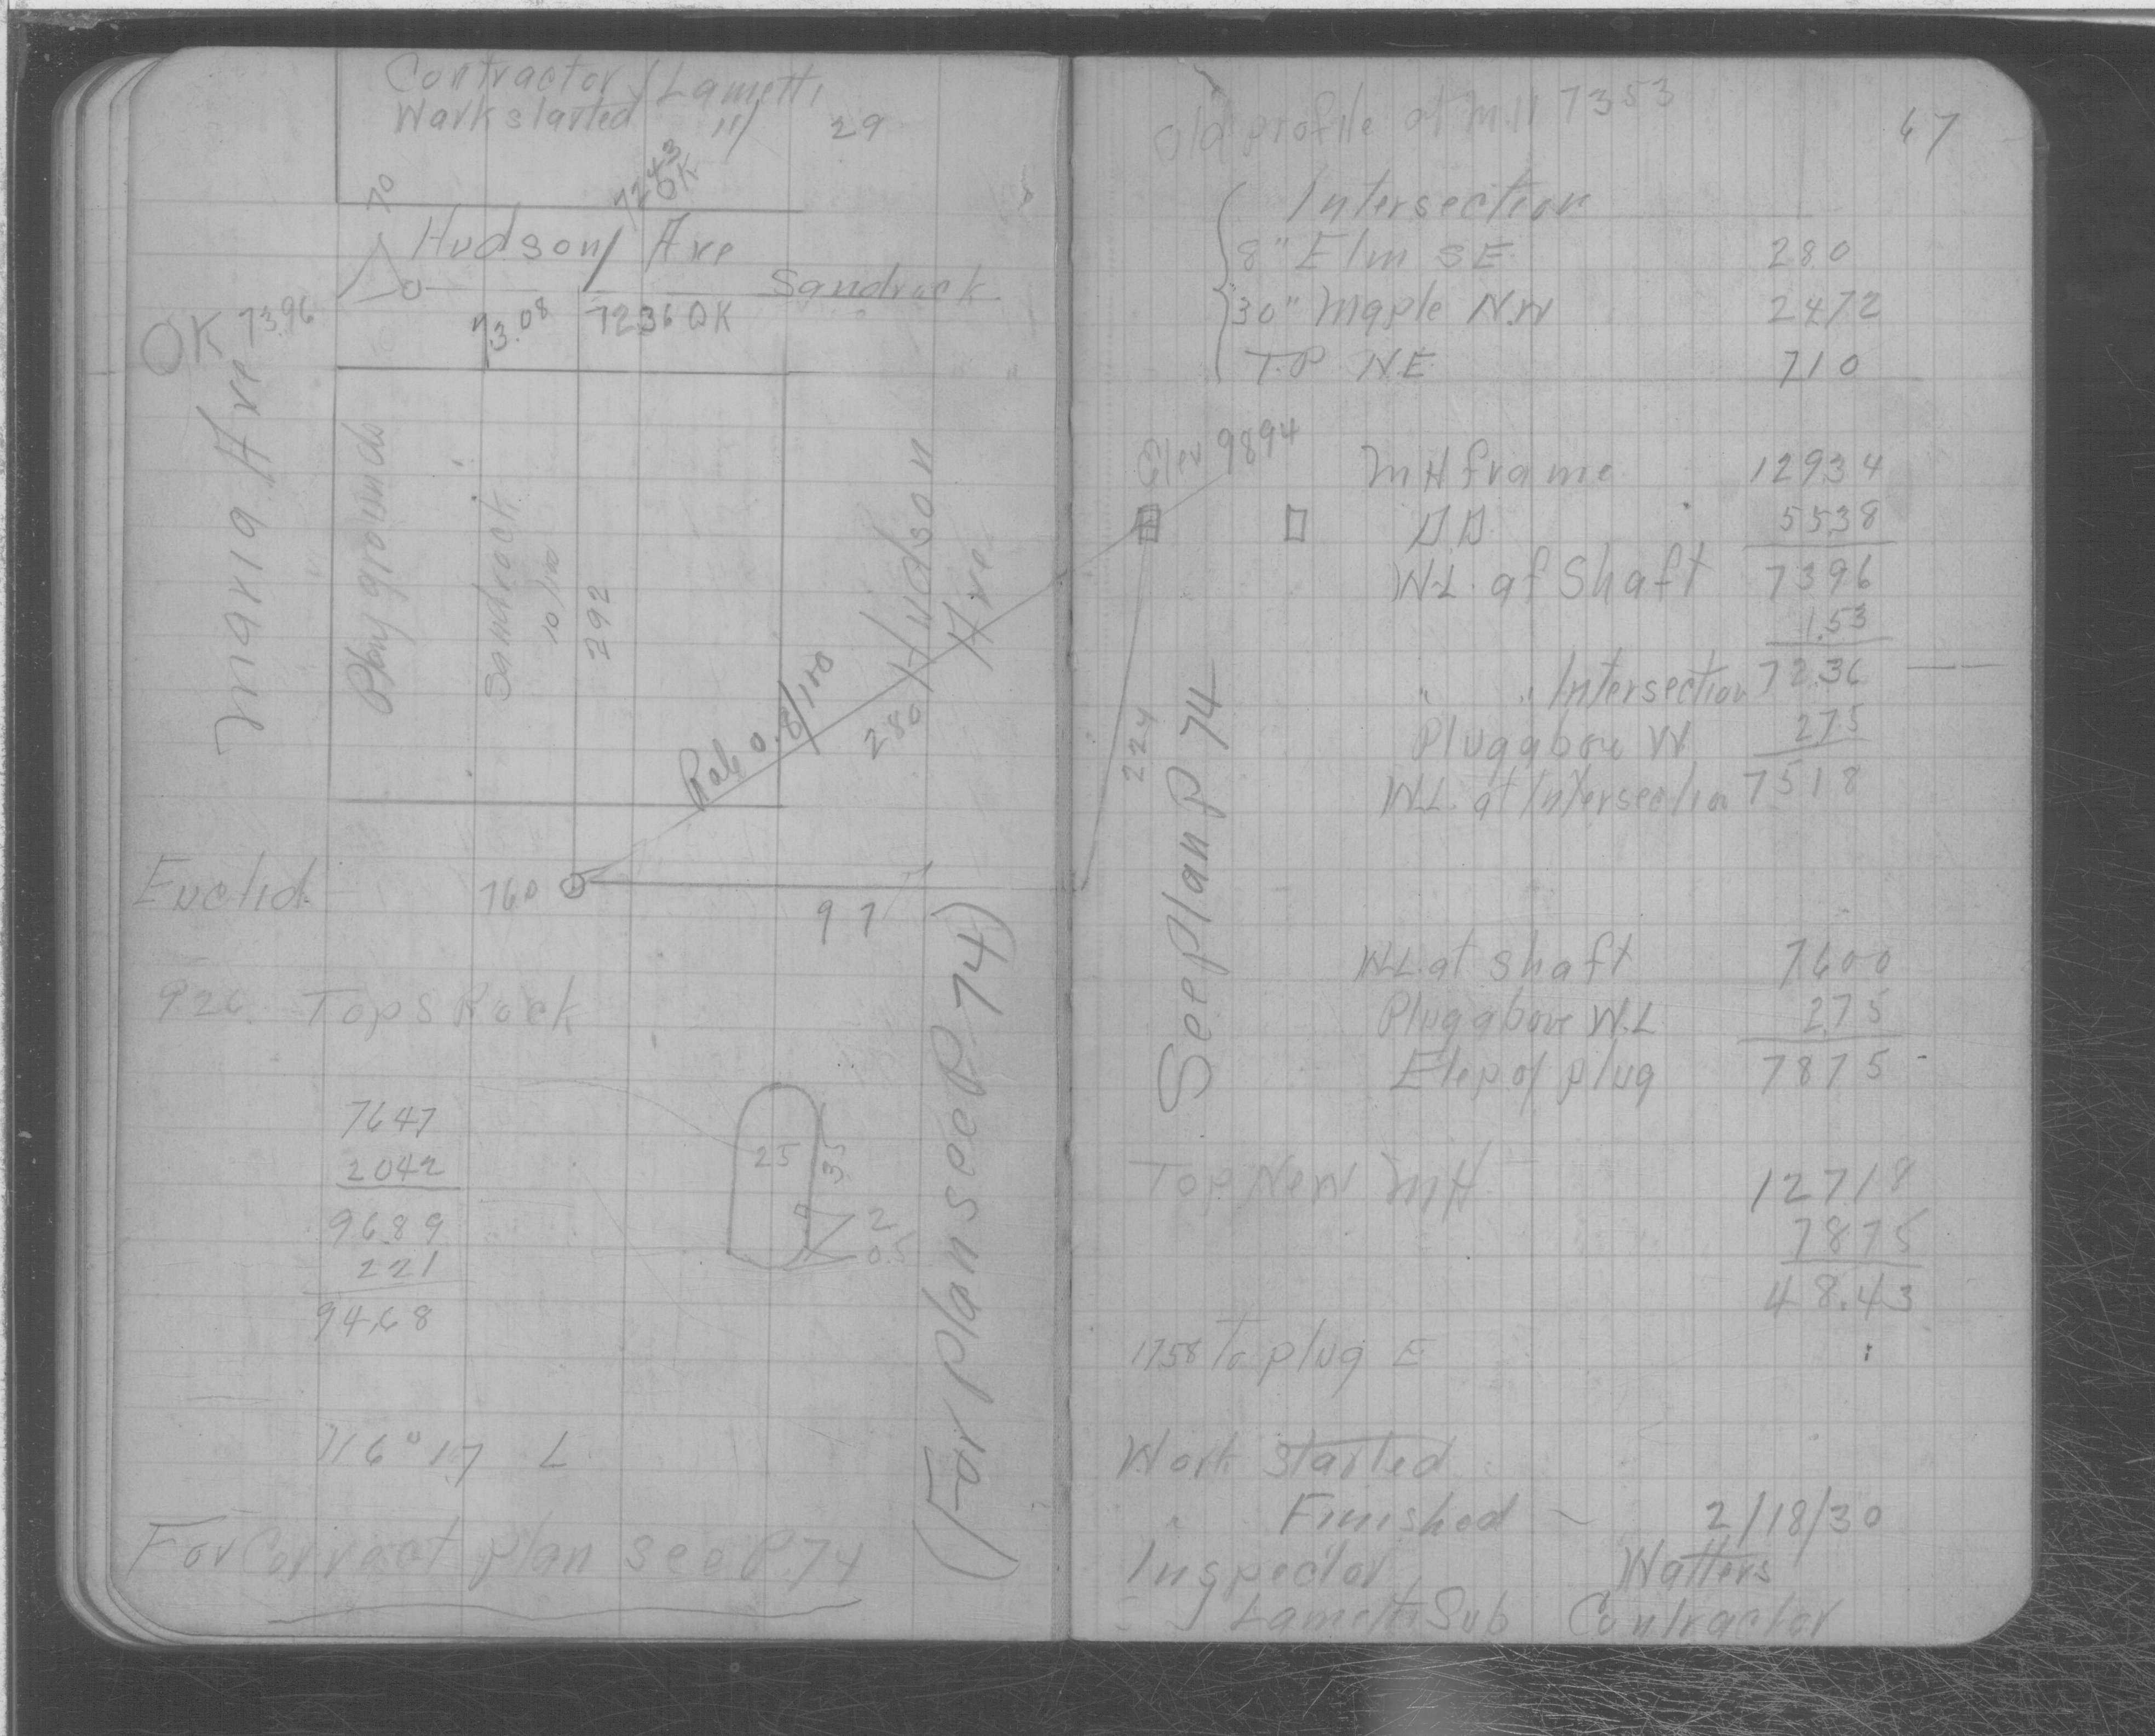 Contractor J Lametti
Work started 11/ 29
70
7243
OK
Hudson Ave
Sandrock
OK 73.96
73.08 7236 OK
Maria Ave
Play grounds
Sandrock
10/100
392
Rate 0.8/100
280
Hudson
Ave
Euclid
760
97
926 Top S Rock
7647
2042
9689
221
9468
25
35
2
0.5
(For plan see P. 74)
For Correct plan see P. 74
Old profile at M.H 7353
67
Intersection
8" Elm SE 280
30" Maple N.W 2472
T.P NE 710
Elev 9894
MH frame 12934
5538
W.L. of Shaft 7396
1.53
" " Intersection 7236
Plug above W 275
W.L. at Intersection 7518
224
See plan P 74
W.L. at Shaft 7600
Plug above W.L 275
Elep of plug 7875
Top New MH 12718
7875
48.43
1758 To plug E
Work Started
" Finished - 2/18/30
Inspector Watters
J Lametti Sub Contractor